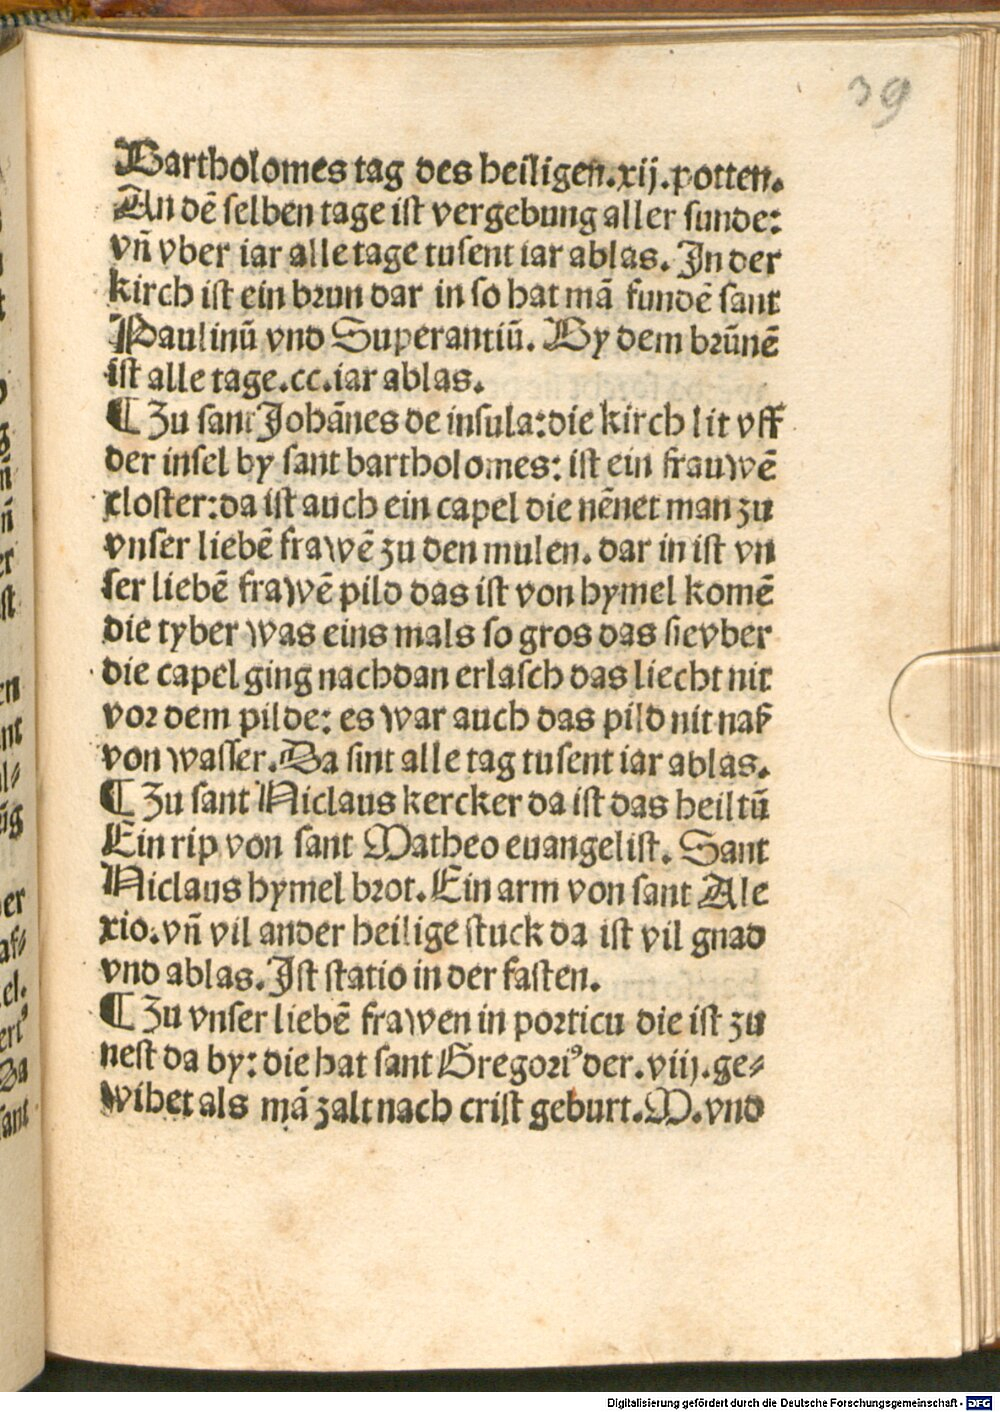 39
Bartholomes tag des heiligen.xij.potten.
An dē selben tage ist vergebung aller sunde:
vn̄ vber iar alle tage tusent iar ablas. In der
kirch ist ein brun dar in so hat mā fundē sant
Paulinū vnd Superantiū. By dem brūnē
ist alle tage.cc.iar ablas.
¶ Zu sant Johānes de insula:die kirch lit vff
der insel by sant bartholomes: ist ein frauwē
closter:da ist auch ein capel die nēnet man zu
vnser liebē frawē zu den mulen. dar in ist vn
ser liebē frawē pild das ist von hymel komē
die tyber was eins mals so gros das sie vber
die capel ging nachdan erlasch das liecht nit
vor dem pilde: es war auch das pild nit naß
von wasser. Da sint alle tag tusent iar ablas.
¶ Zu sant Niclaus kercker da ist das heiltū
Ein rip von sant Matheo euangelist. Sant
Niclaus hymel brot. Ein arm von sant Ale
xio. vn̄ vil ander heilige stuck da ist vil gnad
vnd ablas. Ist statio in der fasten.
¶ Zu vnser liebē frawen in porticu die ist zu
nest da by: die hat sant Gregoriꝰ der.viij.ge⸗
wihet als mā zalt nach crist geburt. M. vnd
Digitalisierung gefördert durch die Deutsche Forschungsgemeinschaft - DFG